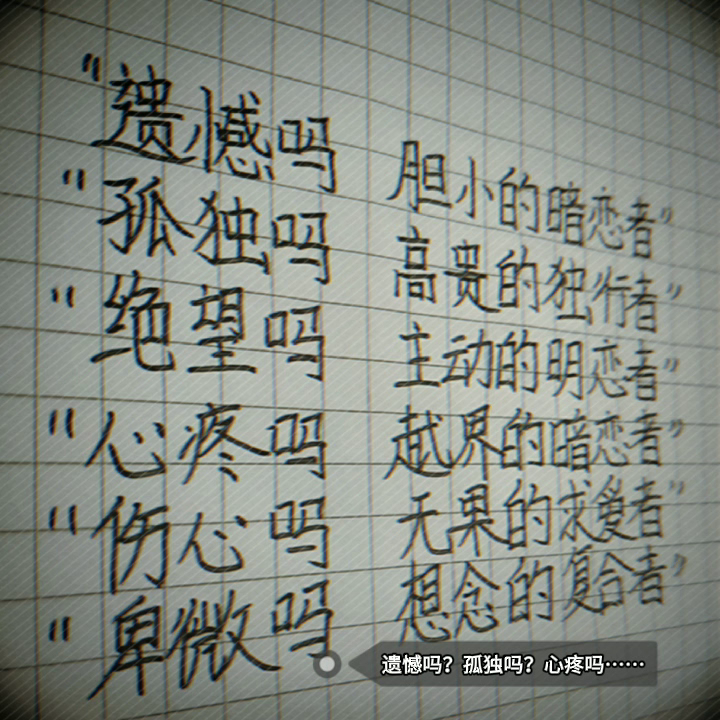 "遗憾吗 胆小的暗恋者"
"孤独吗 高贵的独行者"
"绝望吗 主动的明恋者"
"心疼吗 越界的暗恋者"
"伤心吗 无果的求爱者"
"卑微吗 想念的复合者"
遗憾吗？孤独吗？心疼吗……